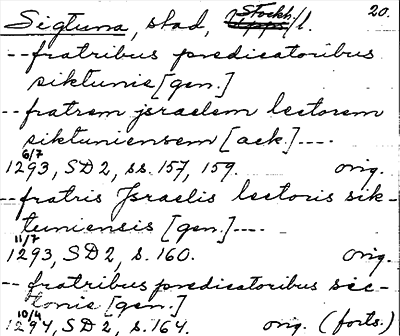 Sigtuna, stad, Stockh. l. 20.
-- fratribus predicatoribus
siktunie [gen.]
-- fratrem jsraelem lectorem
siktuniensem [ack.] ----
6/7
1293, SD 2, ss. 157, 159. orig.
-- fratris Jsraelis lectoris sik-
tuniensis [gen.] ----
11/7
1293, SD 2, s. 160. orig.
-- fratribus predicatoribus sic-
tonie [gen.]
10/4
1294, SD 2, s. 164. orig. (forts.)